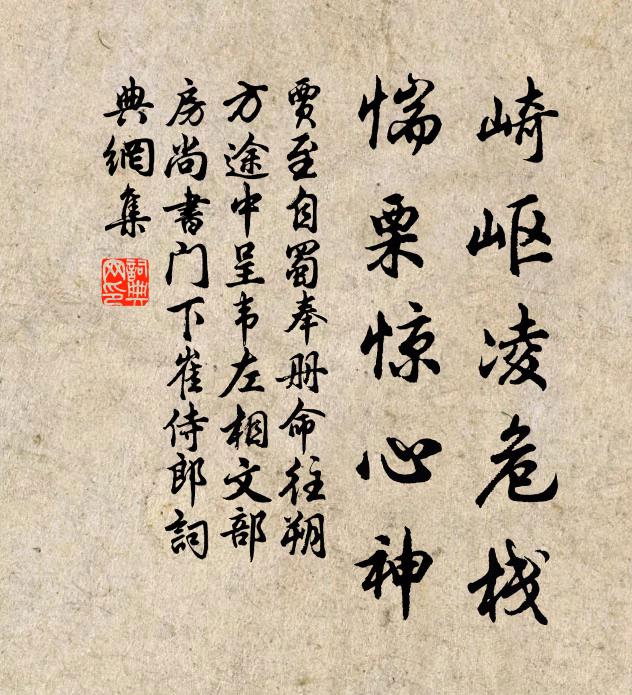 崎岖凌危栈
惴栗惊心神
贾至自蜀奉册命往朔
方途中呈韦左相文部
房尚书门下崔侍郎詞
典網集
詞典網印